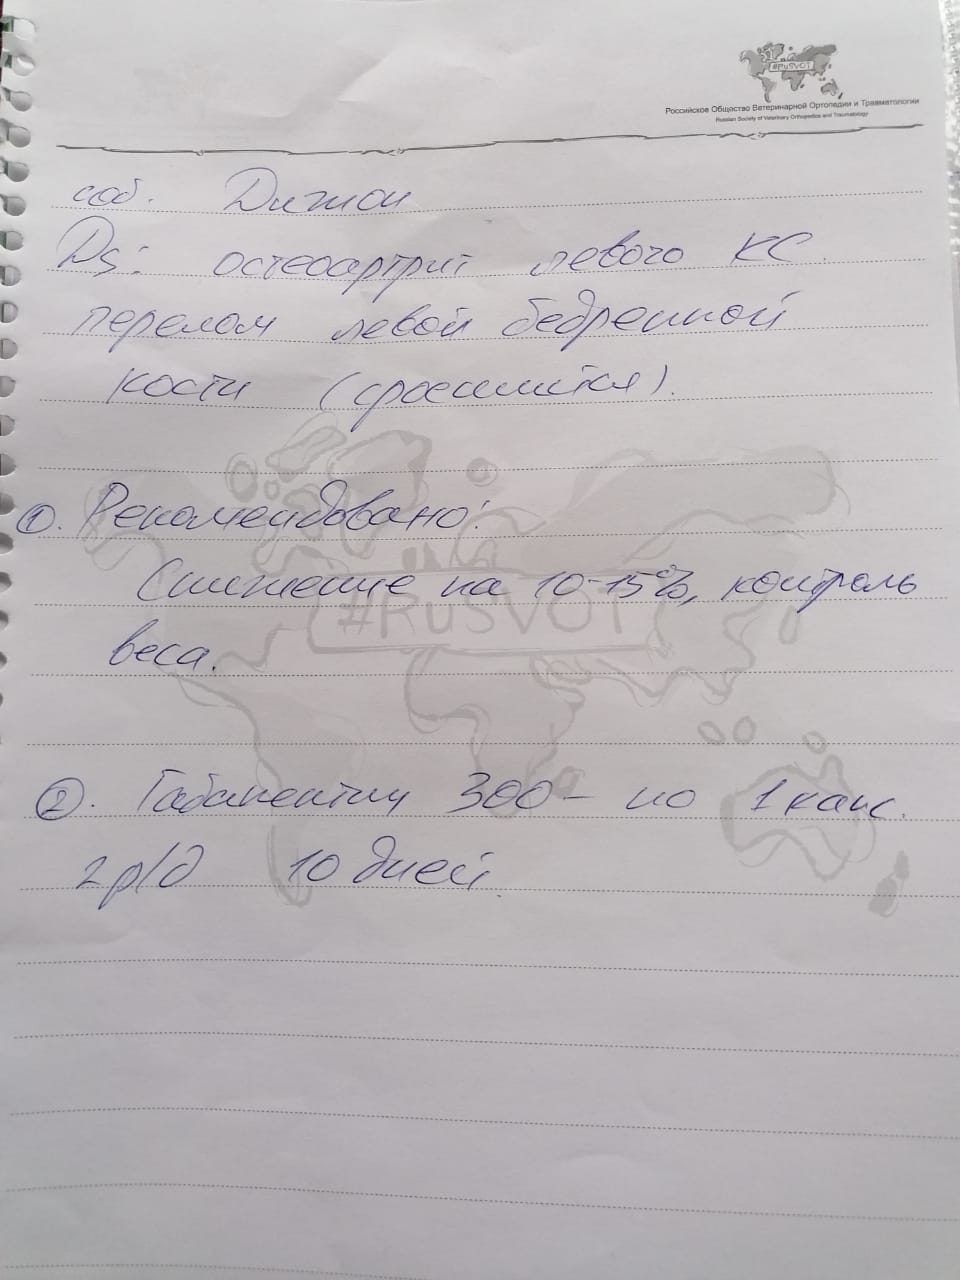 #RuSVOT
Российское Общество Ветеринарной Ортопедии и Травматологии
Russian Society of Veterinary Orthopedics and Traumatology
соб. Дижон
Ds: остеоартрит левого КС.
перелом левой бедренной
кости (сросшийся).
1. Рекомендовано:
Снижение на 10-15%, контроль
#RUSVOT
веса.
2. Габапентин 300 - по 1 капс.
2 р/д 10 дней.